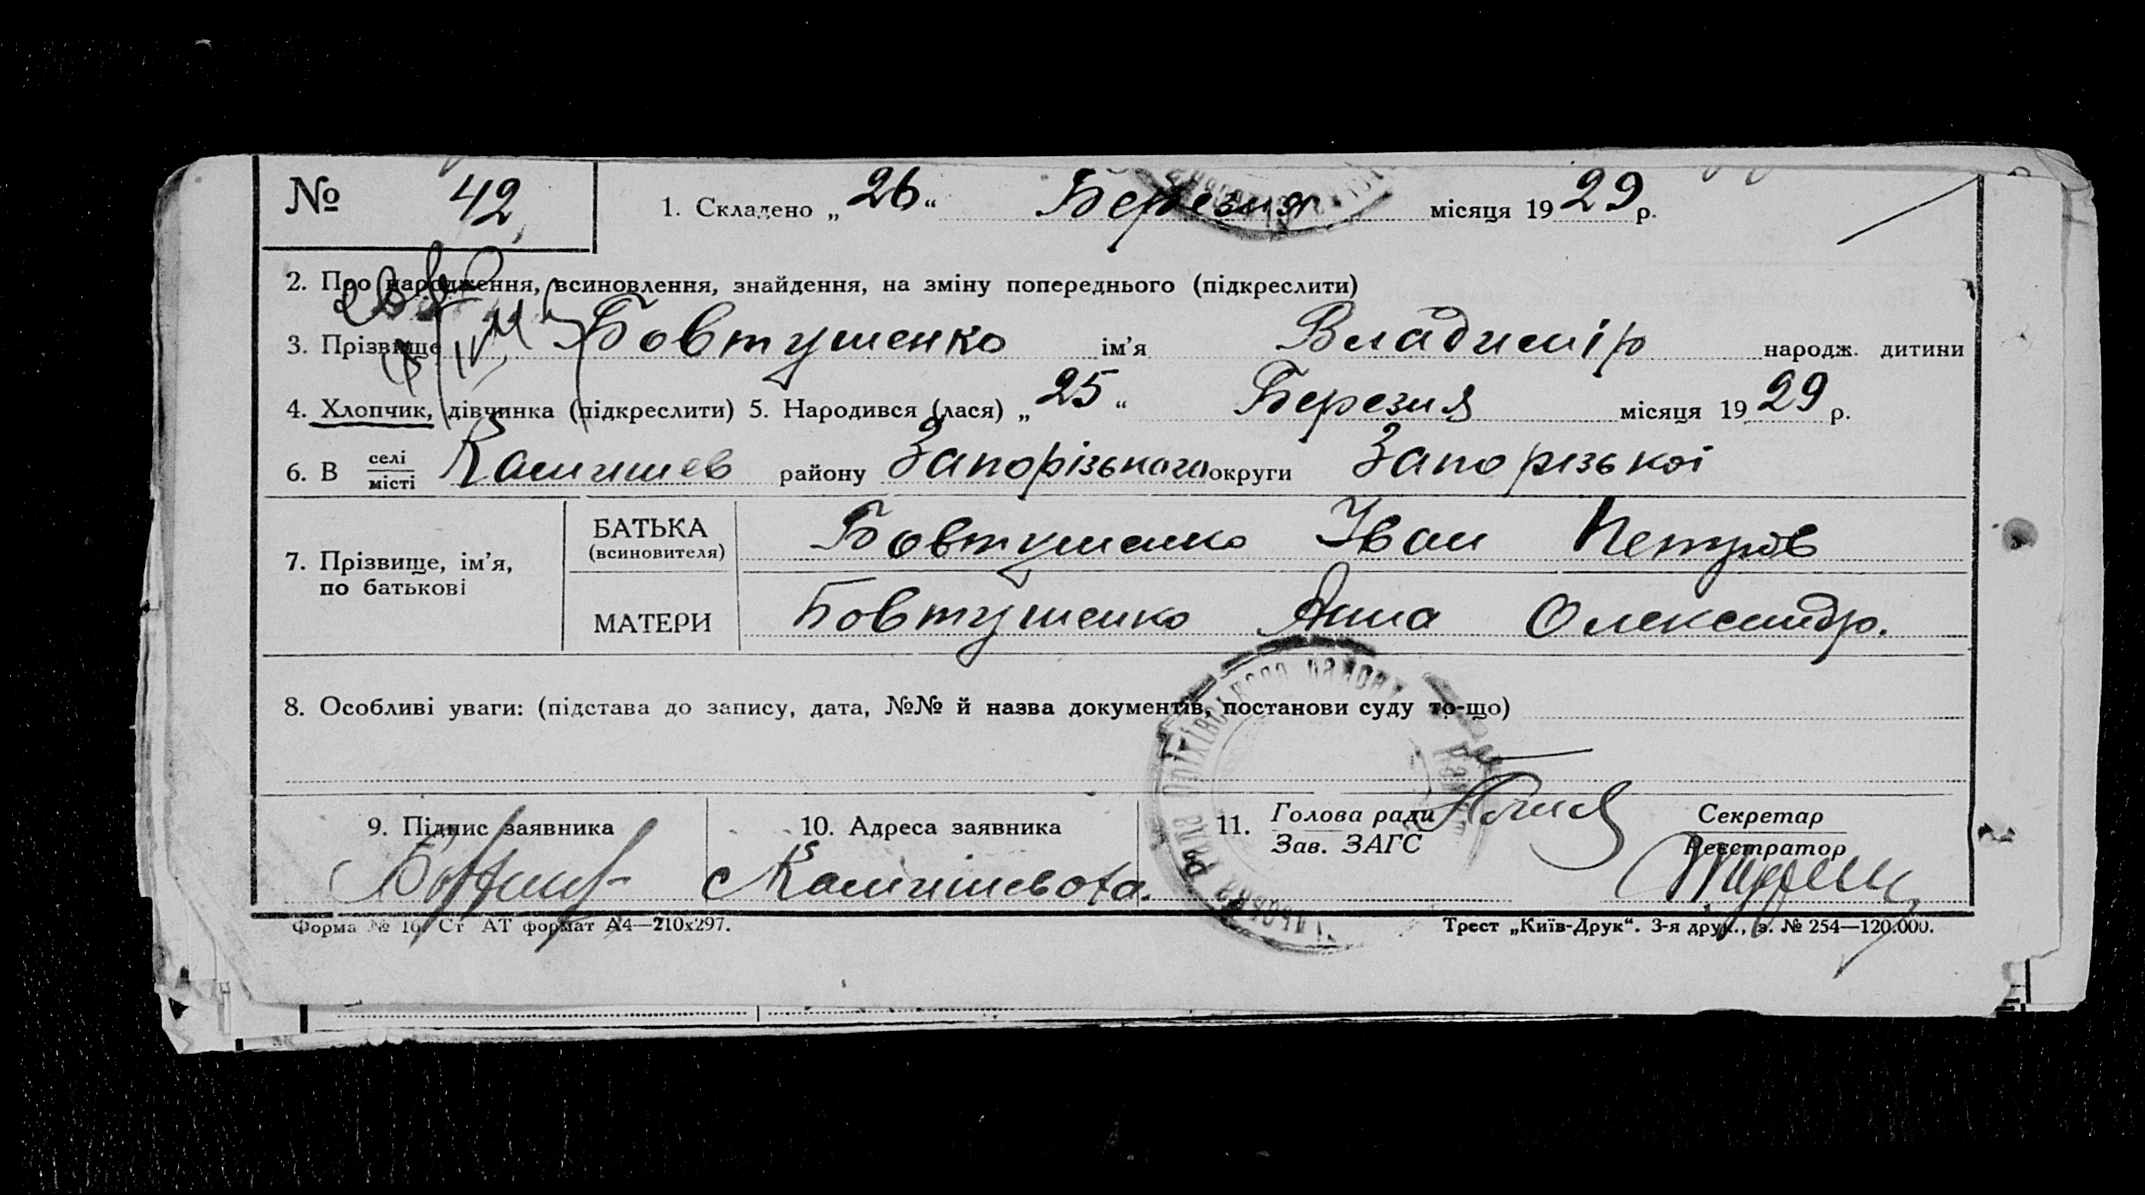 № 42
1. Складено „26“ Березня місяця 1929 р.
2. Про народження, всиновлення, знайдення, на зміну попереднього (підкреслити)
3. Прізвище Бовтушенко ім’я Владимір народж. дитини
4. Хлопчик, дівчинка (підкреслити) 5. Народився (лася) „25“ Березня місяця 1929 р.
6. В селі місті Камишев району Запорізького округи Запорізької
7. Прізвище, ім’я, по батькові
БАТЬКА (всиновителя) Бовтушенко Іван Петров
МАТЕРИ Бовтушенко Анна Олександр.
8. Особливі уваги: (підстава до запису, дата, №№ й назва документів, постанови суду то-що)
9. Підпис заявника
10. Адреса заявника
с Камишеваха.
11. Голова ради
Зав. ЗАГС
Секретар
Реєстратор
Форма № 16 Ст АТ формат А4—210х297.
Трест „Київ-Друк“. 3-я друк., з. № 254—120.000.